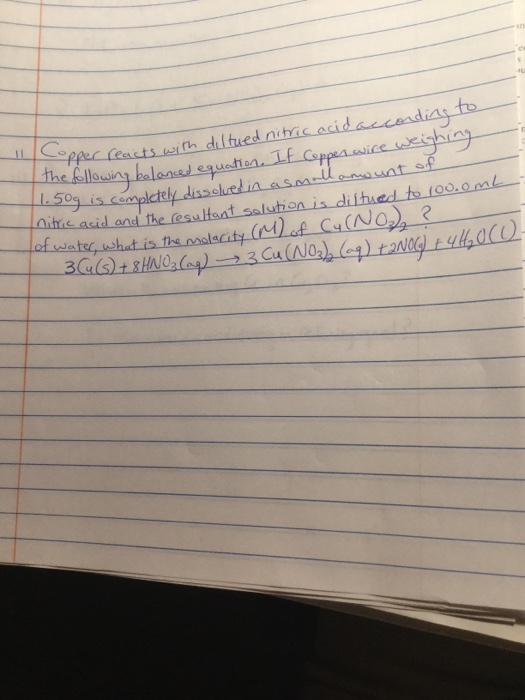 11 Copper reacts with diltued nitric acid according to
the following balanced equation. If Copper wire weighing
1.50g is completely dissolved in a small amount of
nitric acid and the resultant solution is diltued to 100.0mL
of water, what is the molarity (M) of Cu(NO3)2 ?
3Cu(s) + 8HNO3(aq) → 3Cu(NO3)2 (aq) + 2NO(g) + 4H2O(l)